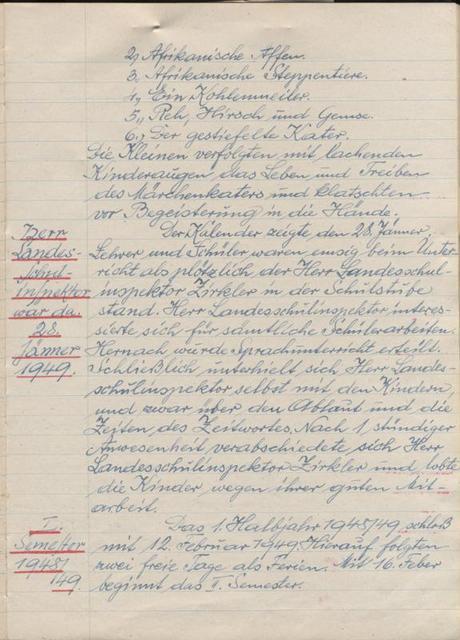 2, Afrikanische Affen.
3, Afrikanische Steppentiere.
4, Ein Kohlenmeiler.
5, Reh, Hirsch und Gemse.
6, Der gestiefelte Kater.
Die Kleinen verfolgten mit lachenden
Kinderaugen das Leben und Treiben
des Märchenkaters und klatschten
vor Begeisterung in die Hände.
Herr
Landes-
schul-
inspektor
war da.
28.
Jänner
1949.
Der Kalender zeigte den 28. Jänner.
Lehrer und Schüler waren emsig beim Unter-
richt als plötzlich der Herr Landesschul-
inspektor Zirkler in der Schulstube
stand. Herr Landesschulinspektor interes-
sierte sich für sämtliche Schülerarbeiten.
Hernach wurde Sprachunterricht erteilt.
Schließlich unterhielt sich Herr Landes-
schulinspektor selbst mit den Kindern,
und zwar über den Ablaut und die
Zeiten des Zeitwortes. Nach 1 stündiger
Anwesenheit verabschiedete sich Herr
Landesschulinspektor Zirkler und lobte
die Kinder wegen ihrer guten Mit-
arbeit.
Semester
1948/
149.
Das 1. Halbjahr 1948/49 schloß
mit 12. Februar 1949. Hierauf folgten
zwei freie Tage als Ferien. Mit 16. Feber
beginnt das Semester.